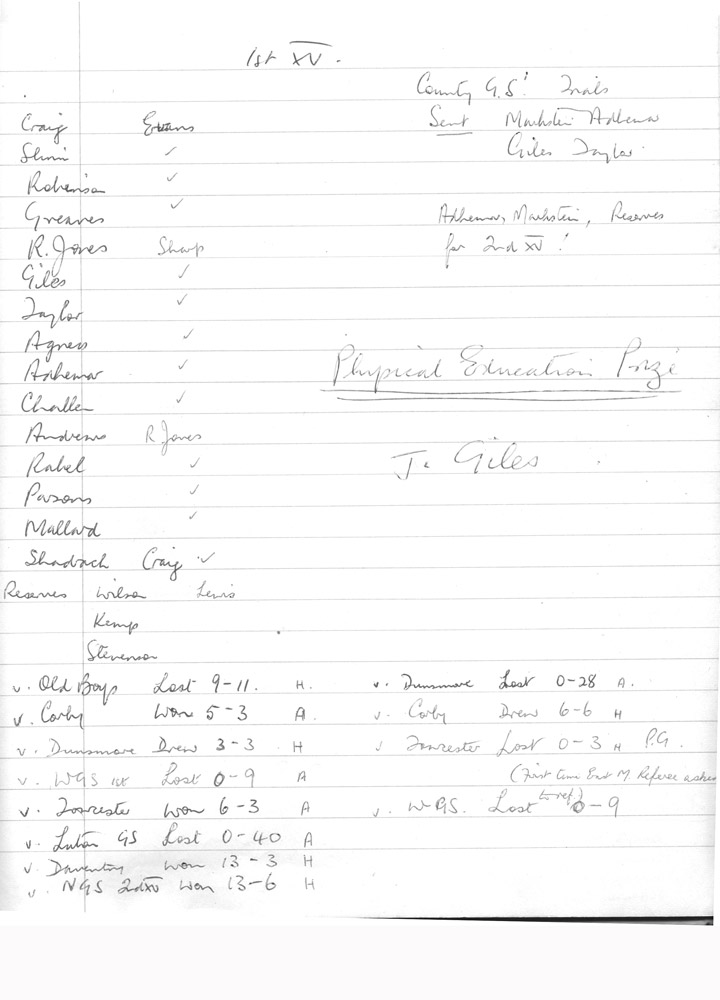 1st XV.
County G.S! Trials
Sent Markstein Adhemar
Giles Taylor
Adhemar, Markstein, Reserves
for 2nd XV!
Craig Evans
Slinn ✓
Robinson ✓
Greaves ✓
R. Jones Sharp
Giles ✓
Taylor ✓
Agnew ✓
Adhemar ✓
Challen ✓
Andrews R Jones
Rabel ✓
Parsons ✓
Mallard ✓
Shadbach Craig ✓
Reserves Wilson Lewis
Kemp
Stevenson
Physical Education Prize
J. Giles
v. Old Boys Lost 9-11. H.
v. Corby Won 5-3 A.
v. Dunsmore Drew 3-3 H
v. WGS 1st Lost 0-9 A
v. Towcester Won 6-3 A
v. Luton GS Lost 0-40 A
v. Daventry Won 13-3 H
v. NGS 2nd XV Won 13-6 H
v. Dunsmore Lost 0-28 A.
v. Corby Drew 6-6 H
v Towcester Lost 0-3 H P.G.
(First time East M. Referee asked
to ref)
v. WGS. Lost 0-9